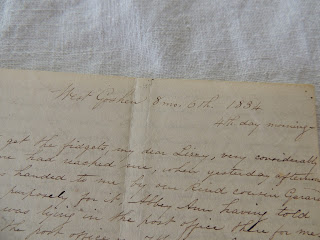 West Goshen 8 mo. 6th. 1834
4th day morning
get the fidgets my dear Lizzy, very considerably
one had reached me, when yesterday afternoon
s handed to me by our kind cousin Gerard
purposely for it Abby Ann having told
was lying in the post office there for me
the post office